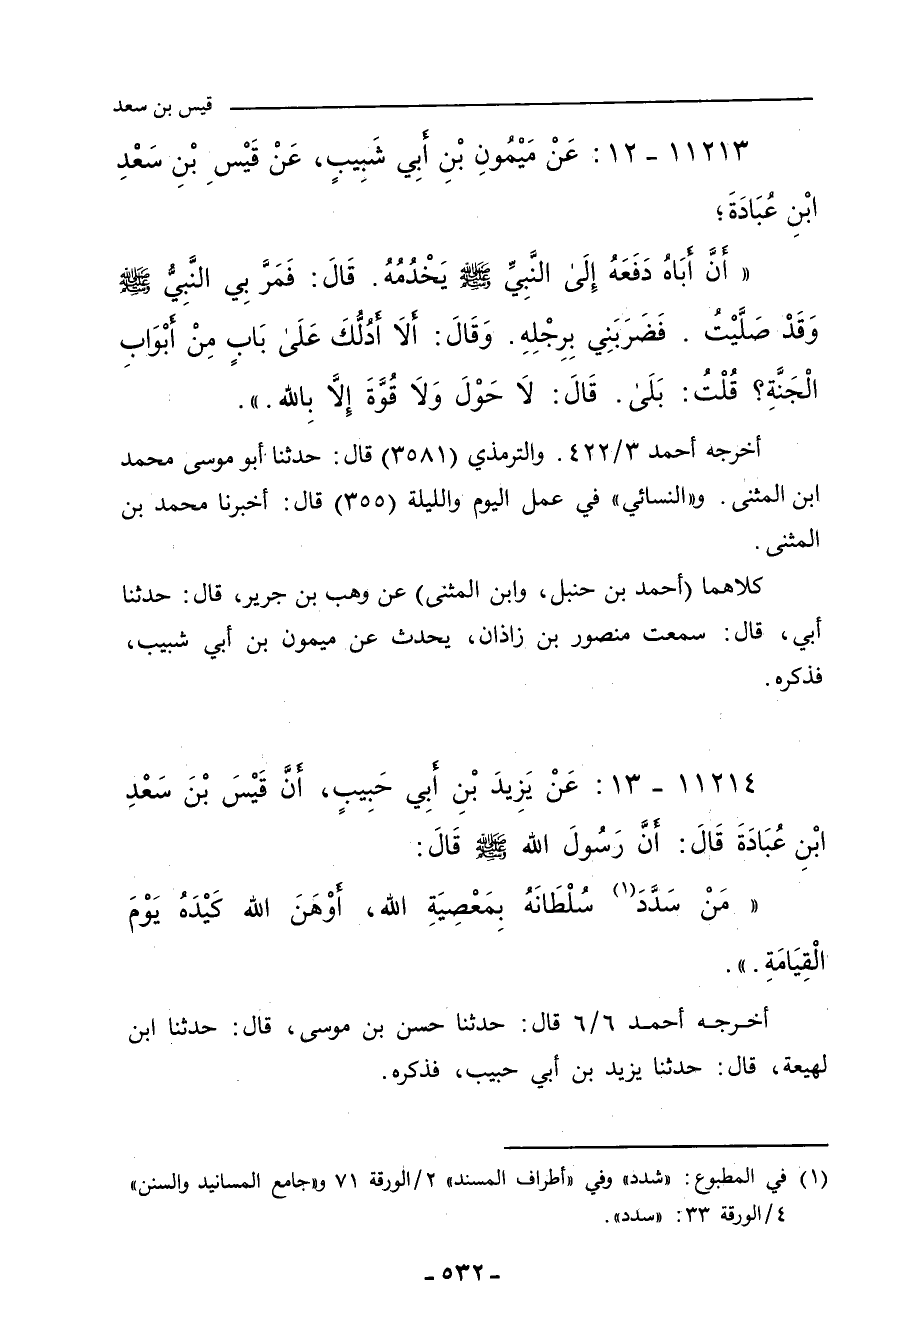 قيس بن سعد
١١٢١٣ - ١٢ : عَنْ مَيْمُونِ بْنِ أَبِي شَبِيبٍ، عَنْ قَيْسِ بْنِ سَعْدِ
ابْنِ عُبَادَةَ؛
« أَنَّ أَبَاهُ دَفَعَهُ إِلَىٰ النَّبِيِّ ﷺ يَخْدُمُهُ. قَالَ: فَمَرَّ بِي النَّبِيُّ ﷺ
وَقَدْ صَلَّيْتُ . فَضَرَبَنِي بِرِجْلِهِ. وَقَالَ: أَلَا أَدُلُّكَ عَلَىٰ بَابٍ مِنْ أَبْوَابِ
الْجَنَّةِ؟ قُلْتُ: بَلَىٰ. قَالَ: لَا حَوْلَ وَلَا قُوَّةَ إِلَّا بِالله .».
أخرجه أحمد ٤٢٢/٣. والترمذي (٣٥٨١) قال: حدثنا أبو موسى محمد
ابن المثنى. و«النسائي» في عمل اليوم والليلة (٣٥٥) قال: أخبرنا محمد بن
المثنى.
كلاهما (أحمد بن حنبل، وابن المثنى) عن وهب بن جرير، قال: حدثنا
أبي، قال: سمعت منصور بن زاذان، يحدث عن ميمون بن أبي شبيب،
فذكره.
١١٢١٤ - ١٣ : عَنْ يَزِيدَ بْنِ أَبِي حَبِيبٍ، أَنَّ قَيْسَ بْنَ سَعْدِ
ابْنِ عُبَادَةَ قَالَ: أَنَّ رَسُولَ الله ﷺ قَالَ:
« مَنْ سَدَّدَ(١) سُلْطَانَهُ بِمَعْصِيَةِ الله، أَوْهَنَ الله كَيْدَهُ يَوْمَ
الْقِيَامَةِ .».
أخـرجـه أحمـد ٦/٦ قال: حدثنا حسن بن موسى، قال: حدثنا ابن
لهيعة، قال: حدثنا يزيد بن أبي حبيب، فذكره.
(١) في المطبوع: «شدد» وفي «أطراف المسند» ٢/الورقة ٧١ و«جامع المسانيد والسنن»
٤/الورقة ٣٣: «سدد».
- ٥٣٢ -